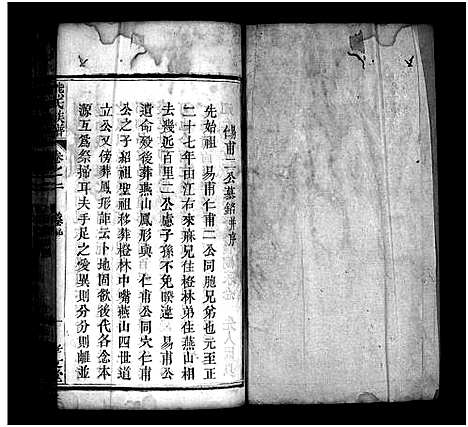 易甫仁甫二公墓銘并序
先始祖　易甫仁甫二公同胞兄弟也元至正
二十七年由江右來麻兄住橙林弟住燕山相
去幾近百里二公慮子孫不免睽違　易甫公
遺命歿後葬燕山鳳形與　仁甫公同穴仁甫
公之子紹祖聖祖移葬橙林中嘴燕山四世道
立公又傍葬鳳形葢云卜地固欲後代各念本
源互爲祭掃耳夫手足之愛異則分分則離並
氏族譜
卷之二